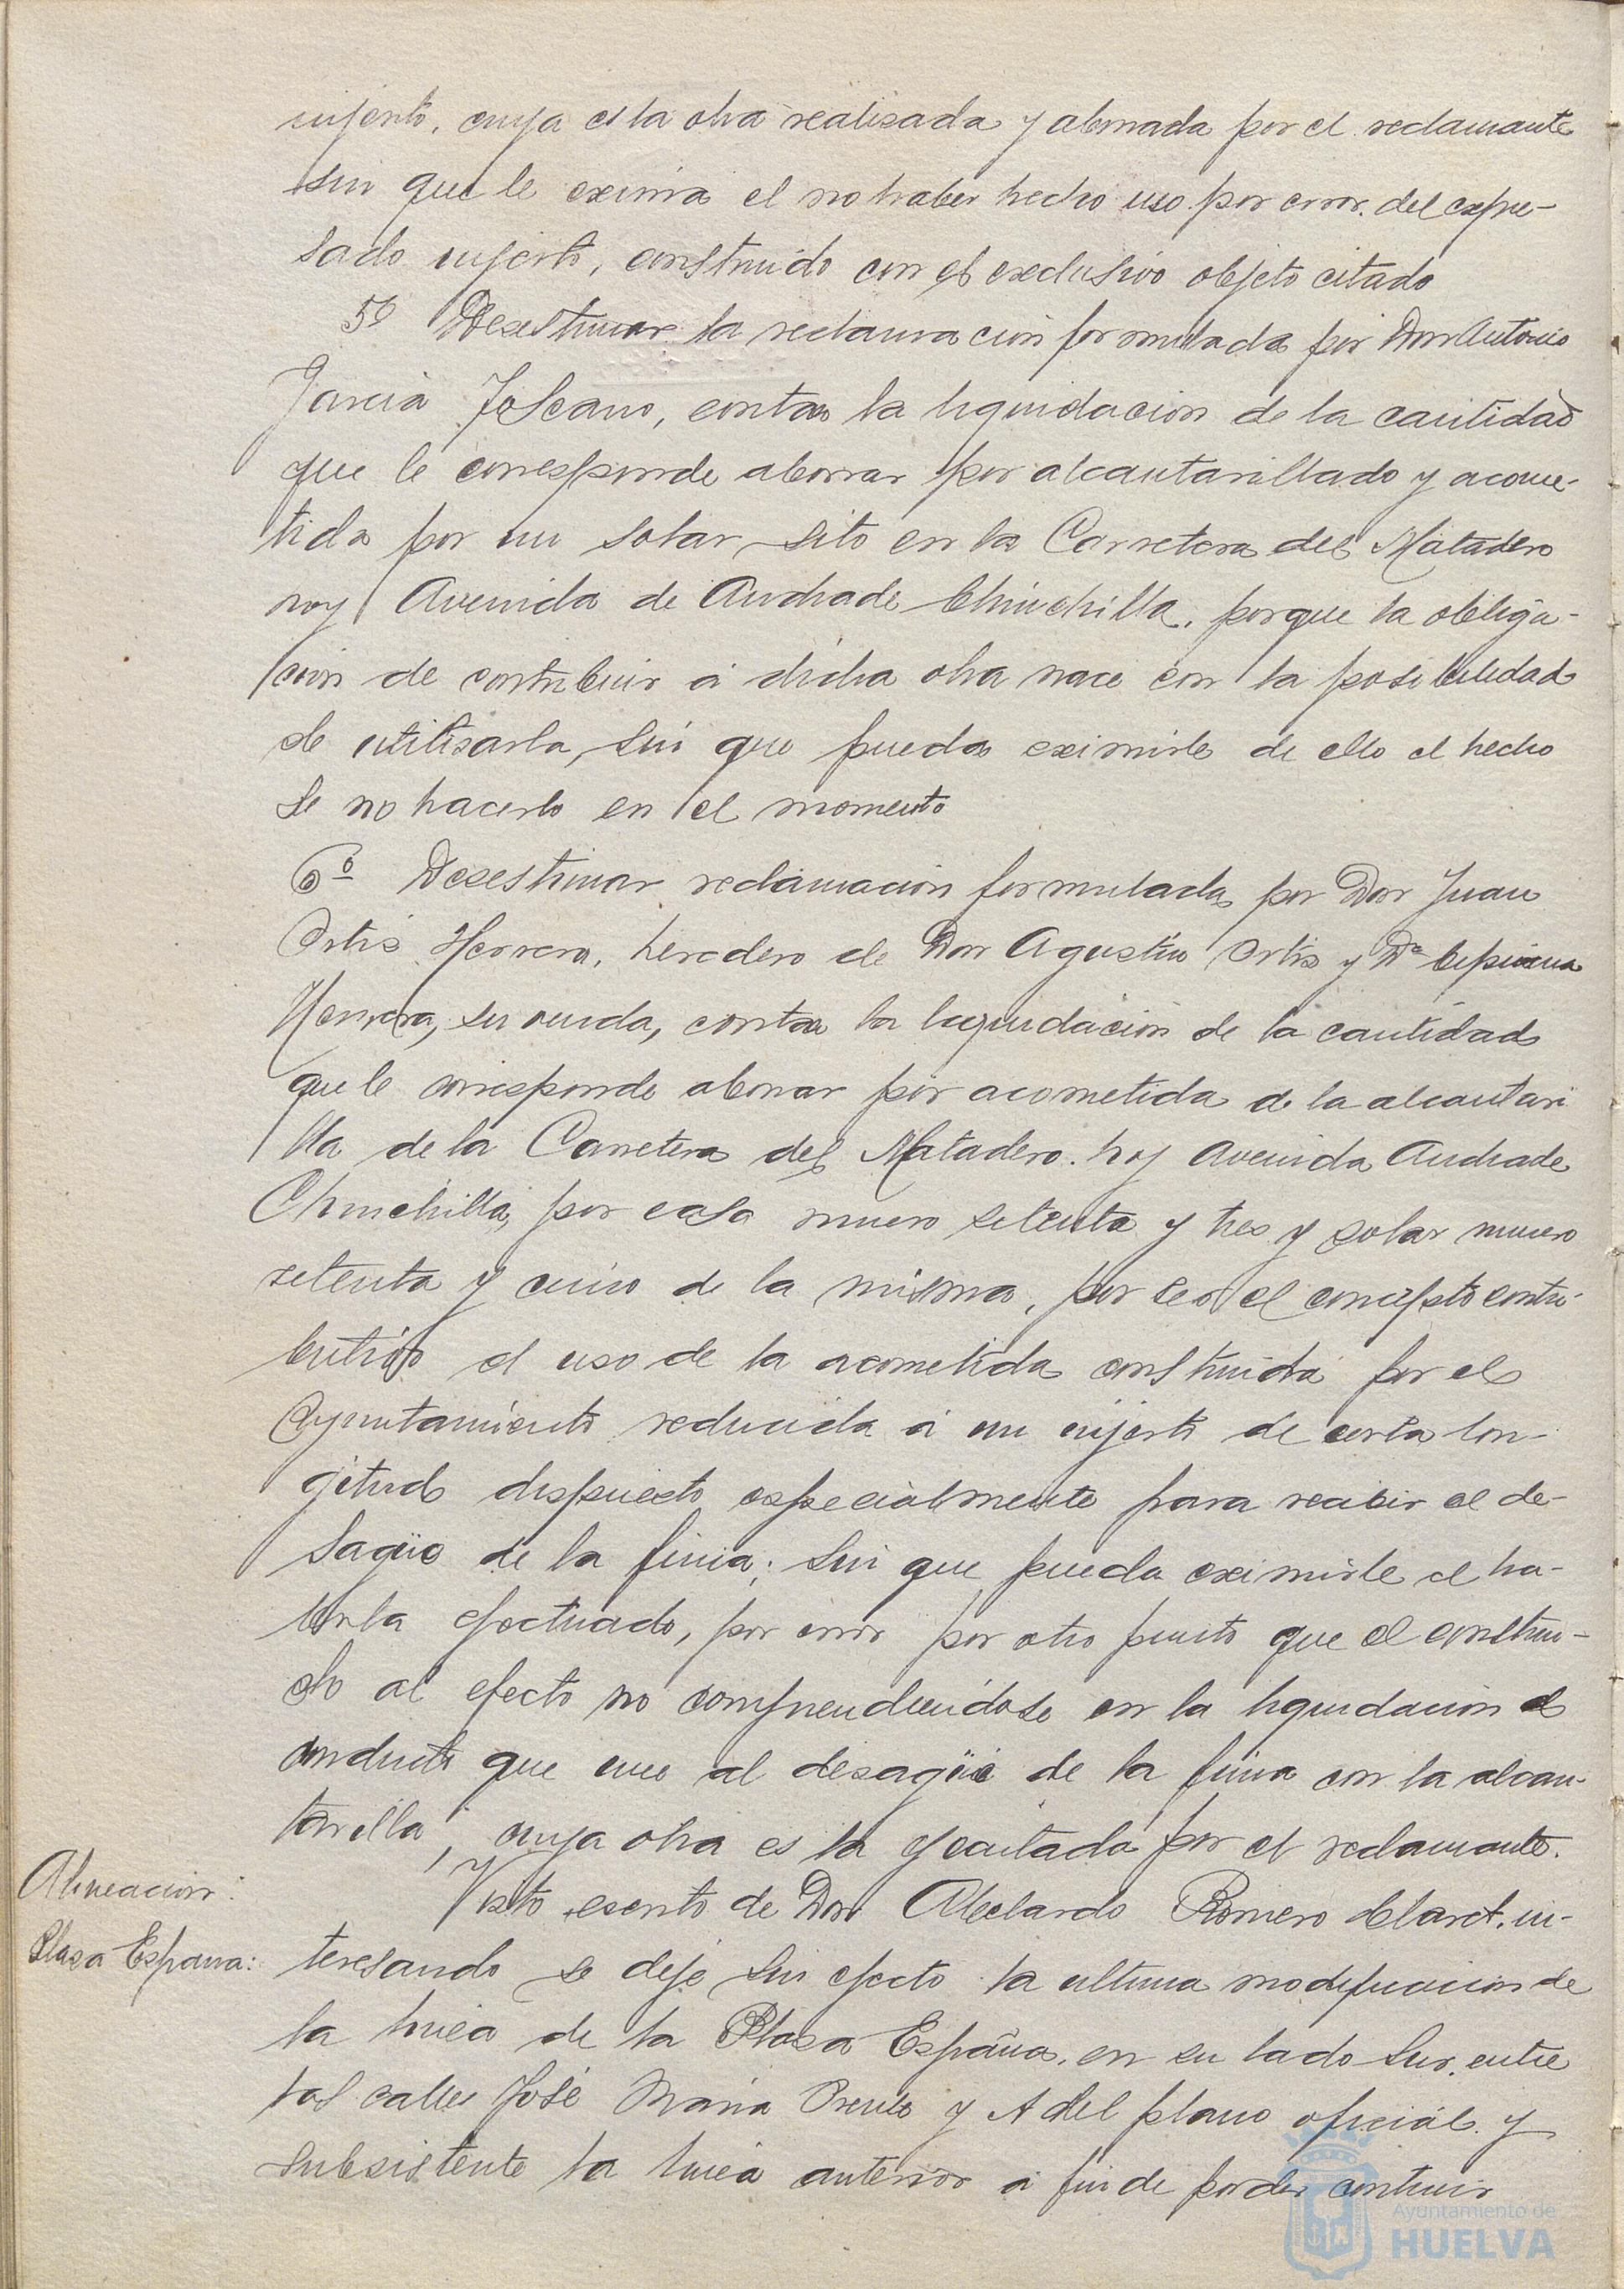 injerto, cuya es la obra realisada y abonada por el reclamante
sin que le exima el no haber hecho uso por error del expre-
sado injerto, construido con el exclusivo objeto citado
5º Desestimar la reclamacion formulada por Don Antonio
Garcia Toscano, contra la liquidacion de la cantidad
que le corresponde abonar por alcantarillado y acome-
tida por un solar sito en la Carretera del Matadero
hoy Avenida de Andrade Chinchilla, porque la obliga-
cion de contribuir á dicha obra nace con la posibilidad
de utilisarla, sin que pueda eximirle de ello el hecho
de no hacerlo en el momento
6º Desestimar reclamacion formulada por Don Juan
Ortis Herrera, heredero de Don Agustin Ortis y Dª
Herrera, su viuda, contra la liquidacion de la cantidad
que le corresponde abonar por acometida de la alcantari
lla de la Carretera del Matadero hoy Avenida Andrade
Chinchilla, por casa numero setenta y tres y solar numero
setenta y cinco de la misma, por ser el concepto contri-
butivo el uso de la acometida construida por el
Ayuntamiento reducida á un injerto de corta lon-
gitud dispuesto especialmente para recibir el de-
sagüe de la finca; sin que pueda eximirle el ha-
berla efectuado, por error por otro punto que el construi-
do al efecto no comprendiendose en la liquidacion el
conducto que une al desagüe de la finca con la alcan-
tarilla, cuya obra es la ejecutada por el reclamante.
Alineacion:
Plasa España:
Visto escrito de Don Abelardo Romero Claret, in-
teresando se deje sin efecto la ultima modificacion de
la linea de la Plasa España, en su lado Sur, entre
las calles José Maria y A del plano oficial y
subsistente la linea anterior á fin de poder contruir
Ayuntamiento de
HUELVA